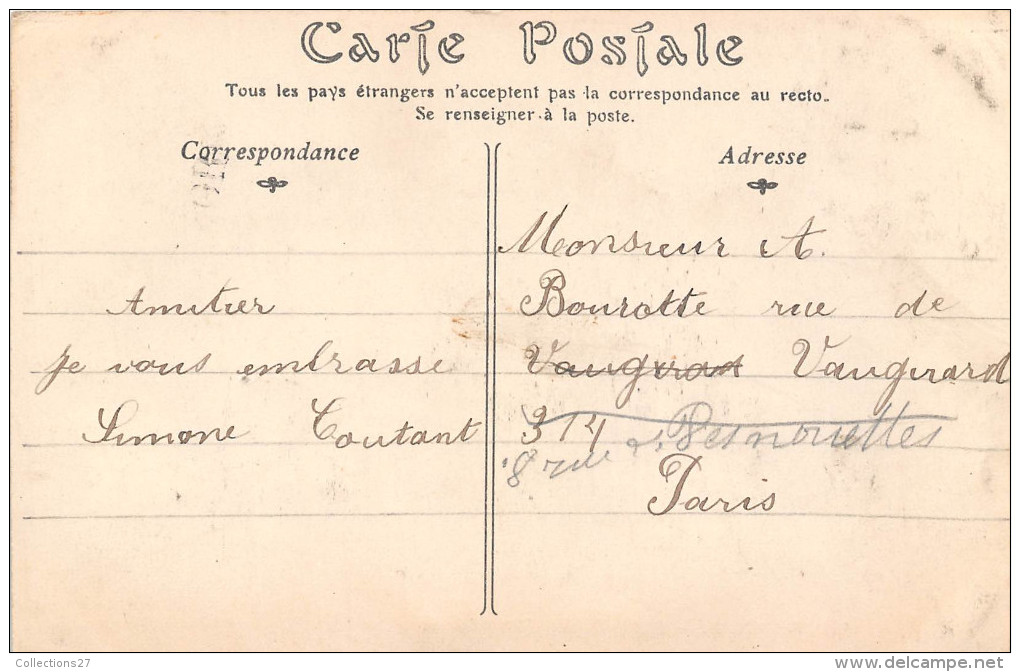 Carte Postale
Tous les pays étrangers n'acceptent pas la correspondance au recto.
Se renseigner à la poste.
Correspondance
Amitier
Je vous embrasse
Simone Coutant
Adresse
Monsieur A.
Bourotte rue de
Vaugirard
314
8 rue Desnouettes
Paris
Collections27
www.delcampe.net